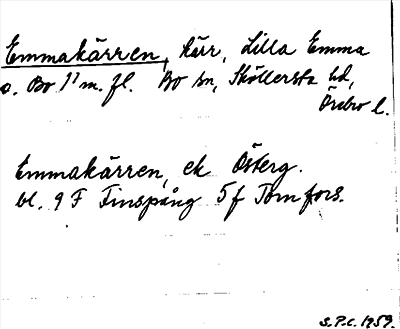 Emmakärren, kärr, Lilla Emma
o. Bo 1¹ m. fl. Bo sn, Sköllersta hd,
Örebro l.
Emmakärren, ek Österg.
bl. 9 F Finspång 5 f Tomfors.
S.P.C. 1959.